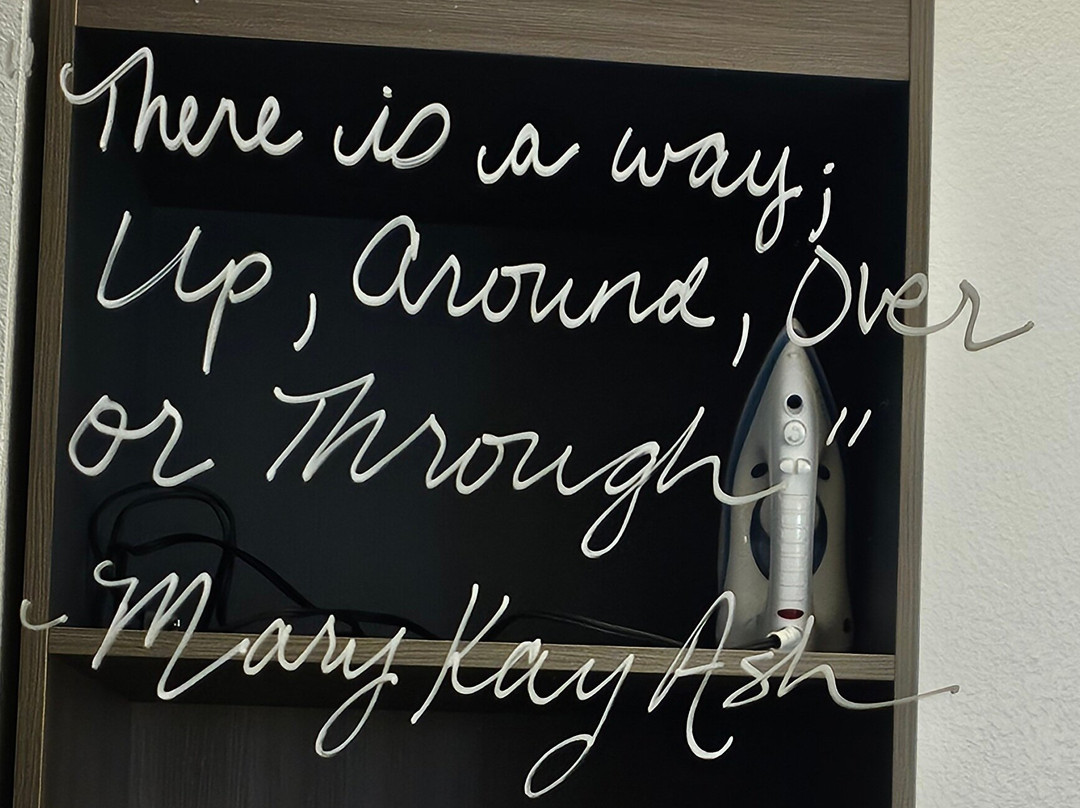 There is a way;
Up, Around, Over
or Through"
Mary Kay Ash